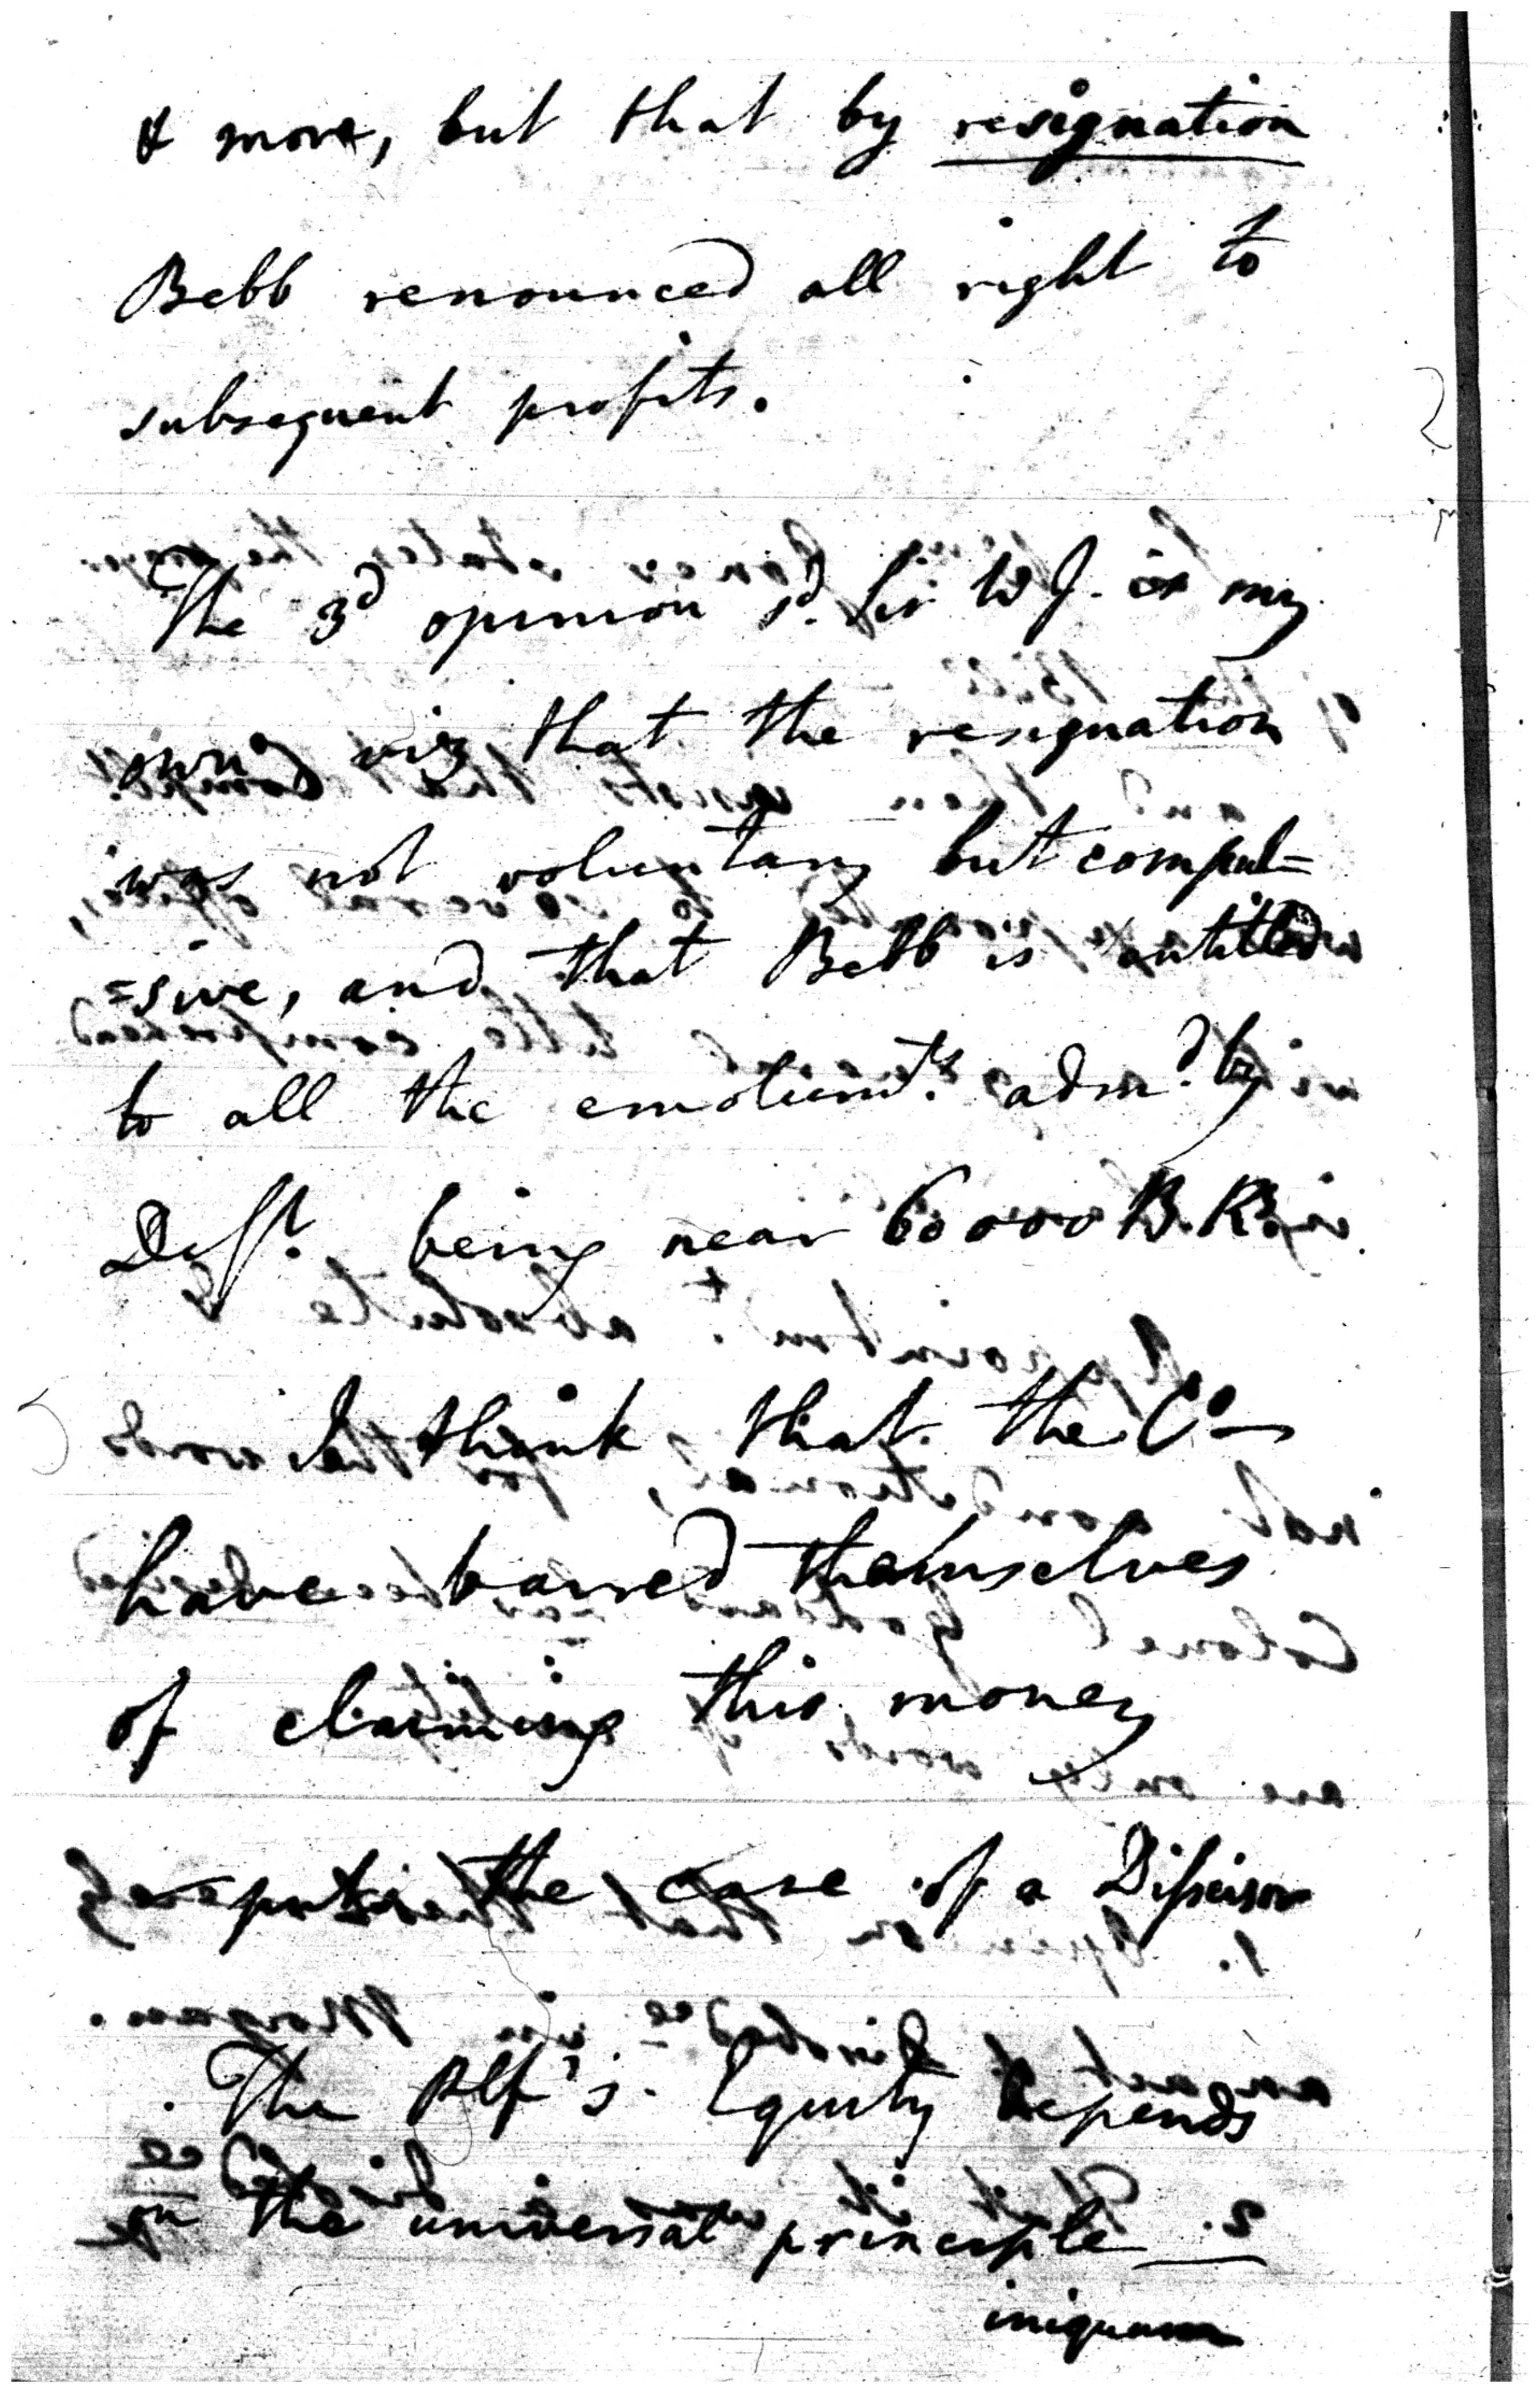 & more, but that by resignation
Bebb renounced all right to
subsequent profits.
The 3d opinion sd. Sir W J. is my
own viz that the resignation
was not voluntary but compul=
=sive, and that Bebb is entitled
to all the emolumts. admd. by
Deft. being near 60000 B. Rs
I think that the Co
have barred themselves
of claiming this money
puts the case of a Disseisor
The Plf's. Equity depends
on the universal principle
iniquum